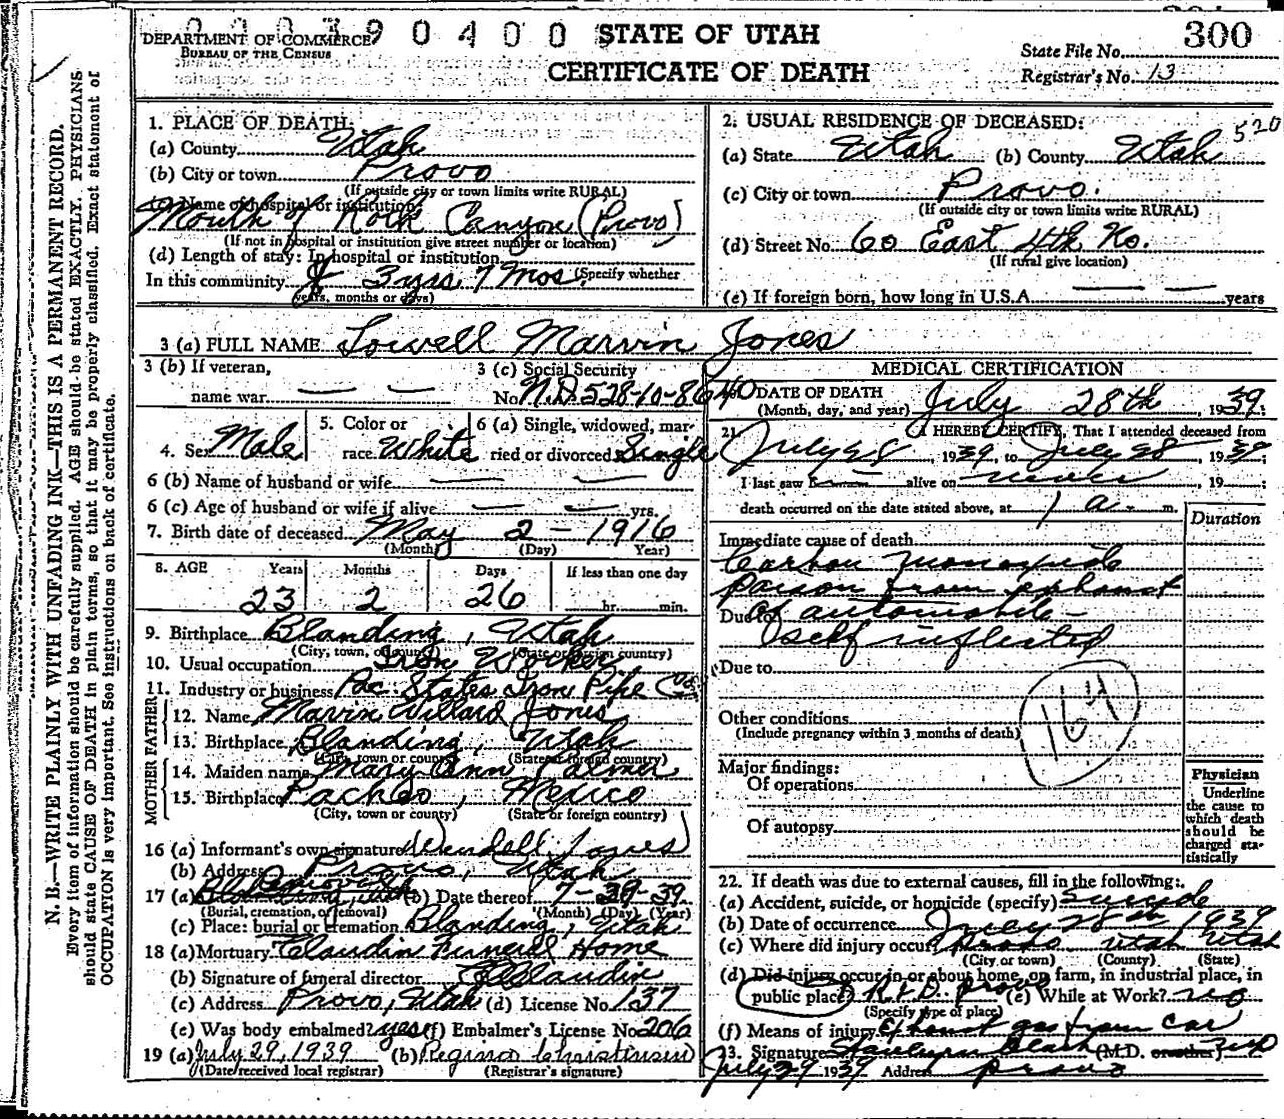 0003390400
STATE OF UTAH
300
DEPARTMENT OF COMMERCE
BUREAU OF THE CENSUS
CERTIFICATE OF DEATH
State File No.
Registrar's No. 13
N. B.—WRITE PLAINLY WITH UNFADING INK—THIS IS A PERMANENT RECORD.
Every item of information should be carefully supplied. AGE should be stated EXACTLY. PHYSICIANS
should state CAUSE OF DEATH in plain terms, so that it may be properly classified. Exact statement of
OCCUPATION is very important. See instructions on back of certificate.
1. PLACE OF DEATH:
(a) County Utah
(b) City or town Provo
(If outside city or town limits write RURAL)
(c) Name of hospital or institution:
Mouth of Rock Canyon (Provo)
(If not in hospital or institution give street number or location)
(d) Length of stay: In hospital or institution
In this community 3 yrs 7 Mos. (Specify whether
years, months or days)
2. USUAL RESIDENCE OF DECEASED: 520
(a) State Utah (b) County Utah
(c) City or town Provo.
(If outside city or town limits write RURAL)
(d) Street No. 60 East 4th No.
(If rural give location)
(e) If foreign born, how long in U.S.A. — — years
3 (a) FULL NAME Lowell Marvin Jones
3 (b) If veteran,
name war — —
3 (c) Social Security
No. N.D. 528-10-8640
4. Sex Male
5. Color or
race White
6 (a) Single, widowed, mar-
ried or divorced Single
6 (b) Name of husband or wife — —
6 (c) Age of husband or wife if alive — — yrs.
7. Birth date of deceased May 2 - 1916
(Month) (Day) Year)
8. AGE Years Months Days If less than one day
23 2 26 hr. min.
9. Birthplace Blanding, Utah
(City, town, or county) (State or foreign country)
10. Usual occupation Iron Worker
11. Industry or business Pac. States Iron Pipe Co.
FATHER
12. Name Marvin Willard Jones
13. Birthplace Blanding, Utah
(City, town or county) (State or foreign country)
MOTHER
14. Maiden name Mary Ann Palmer
15. Birthplace Pacheo, Mexico
(City, town or county) (State or foreign country)
16 (a) Informant's own signature Wendell Jones
(b) Address Provo, Utah
17 (a) Removal (b) Date thereof 7-30-39
(Burial, cremation, or removal) (Month) (Day) (Year)
(c) Place: burial or cremation Blanding, Utah
18 (a) Mortuary Claudin Funeral Home
(b) Signature of funeral director Claudin
(c) Address Provo, Utah (d) License No. 137
(e) Was body embalmed? yes (f) Embalmer's License No. 206
19 (a) July 29, 1939 (b) Regina Christensen
(Date received local registrar) (Registrar's signature)
MEDICAL CERTIFICATION
20 DATE OF DEATH
(Month, day, and year) July 28th, 1939.
21. I HEREBY CERTIFY, That I attended deceased from
July 28, 1939, to July 28, 1939
I last saw h alive on never, 19 ;
death occurred on the date stated above, at 1 a. m.
Duration
Immediate cause of death
Carbon monoxide
poison from exhaust
Due to of automobile—
self inflicted
Due to
Other conditions
(Include pregnancy within 3 months of death)
164
Major findings:
Of operations
Of autopsy
Physician
Underline
the cause to
which death
should be
charged sta-
tistically
22. If death was due to external causes, fill in the following:
(a) Accident, suicide, or homicide (specify) Suicide
(b) Date of occurrence July 28th 1939
(c) Where did injury occur? Provo Utah Utah
(City or town) (County) (State)
(d) Did injury occur in or about home, on farm, in industrial place, in
public place? Provo (e) While at Work? no
(Specify type of place)
(f) Means of injury Exhaust gas from car
23. Signature (M.D. or other) MD
July 29 1939 Address Provo